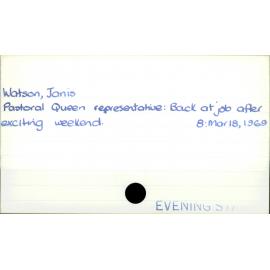 Watson, Janis
Pastoral Queen representative: Back at job after
exciting weekend. 8: Mar 18, 1969
EVENING